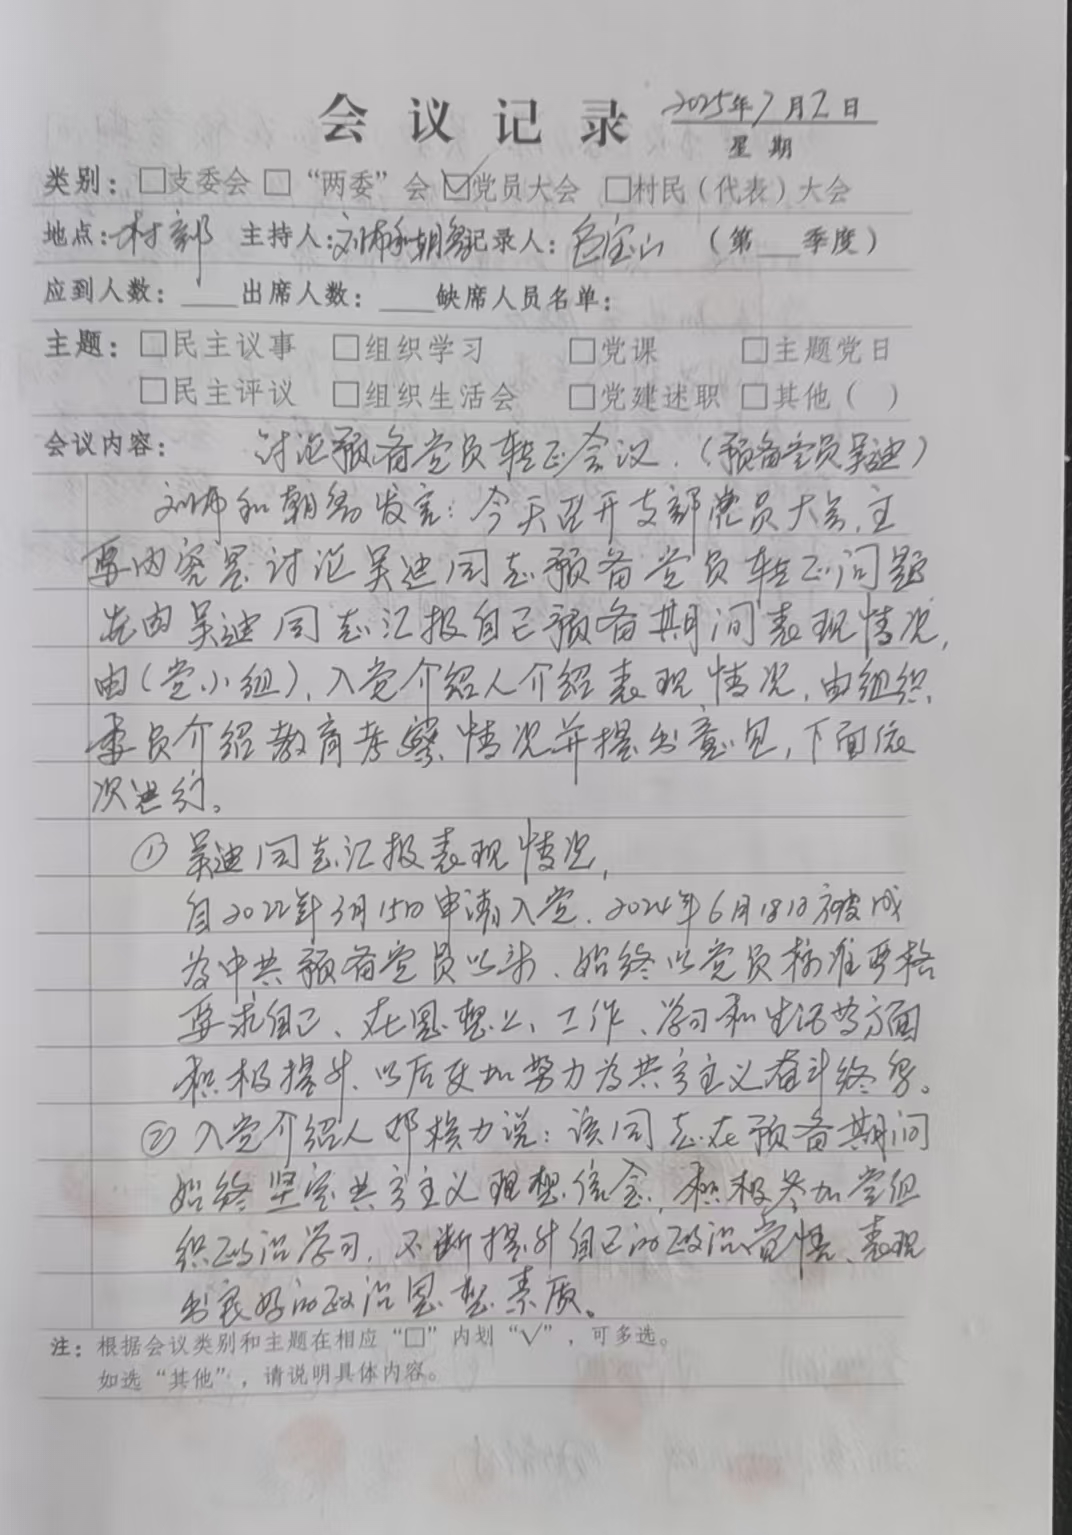 会议记录 2025年7月2日
星期
类别：□支委会 □“两委”会 ☑党员大会 □村民（代表）大会
地点：村部 主持人：刘布和朝鲁 记录人：包宝山 （第___季度）
应到人数：____出席人数：____缺席人员名单：
主题：□民主议事 □组织学习 □党课 □主题党日
□民主评议 □组织生活会 □党建述职 □其他（ ）
会议内容： 讨论预备党员转正会议．（预备党员吴迪）
刘布和朝鲁发言：今天召开支部党员大会，主
要内容是讨论吴迪同志预备党员转正问题
先由吴迪同志汇报自己预备期间表现情况，
由（党小组）、入党介绍人介绍表现情况，由组织
委员介绍教育考察情况并提出意见，下面依
次进行。
① 吴迪同志汇报表现情况，
自2022年3月15日申请入党．2024年6月18日被成
为中共预备党员以来、始终以党员标准严格
要求自己、在思想上、工作、学习和生活等方面
积极提升．以后更加努力为共产主义奋斗终身。
② 入党介绍人 说：该同志在预备期间
始终坚定共产主义理想信念，积极参加党组
织政治学习，不断提升自己的政治觉悟、表现
出良好的政治思想素质。
注：根据会议类别和主题在相应“□”内划“√”，可多选。
如选“其他”，请说明具体内容。